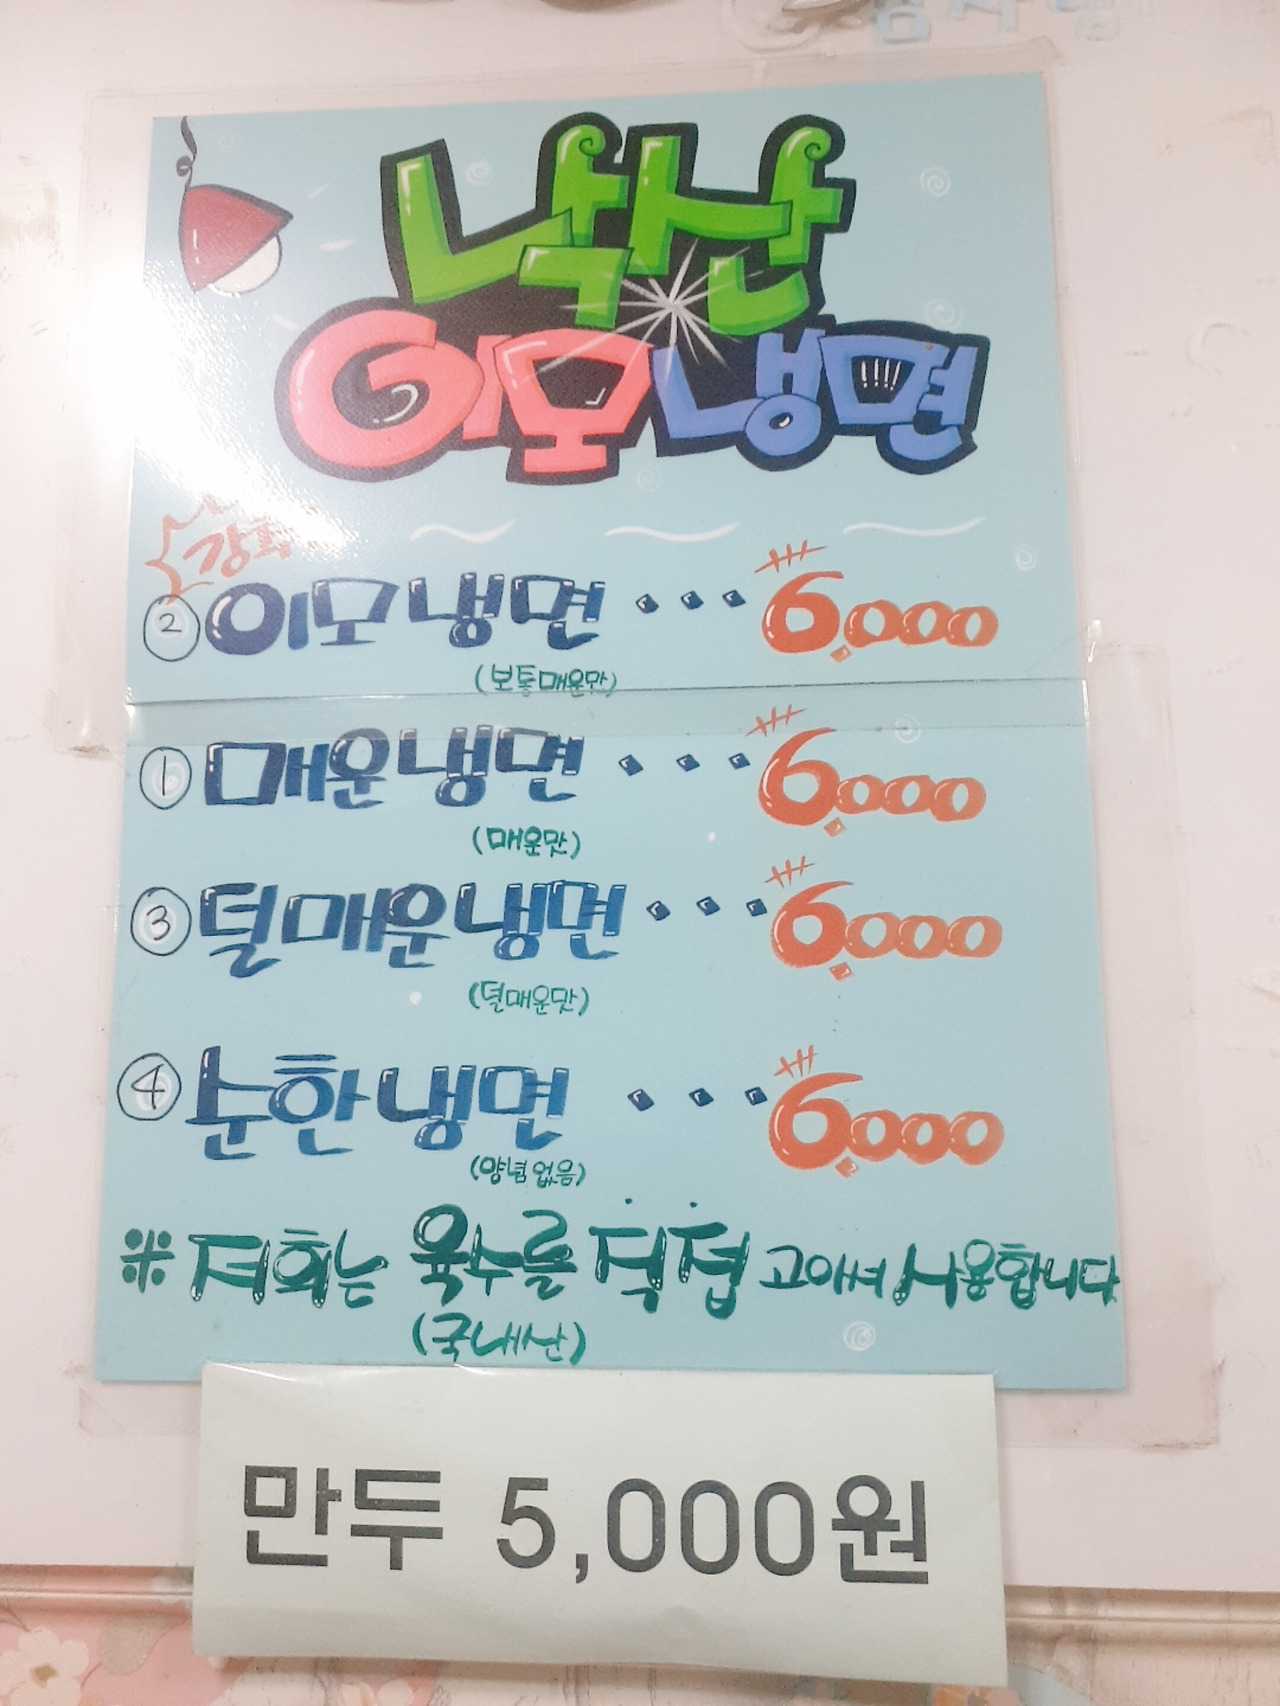 낙산
이모냉면
② 이모냉면 ... 6,000
(보통매운맛)
① 매운냉면 ... 6,000
(매운맛)
③ 덜매운냉면 ... 6,000
(덜매운맛)
④ 순한냉면 ... 6,000
(양념없음)
※ 저희는 육수를 직접 고아서 사용합니다
(국내산)
만두 5,000원